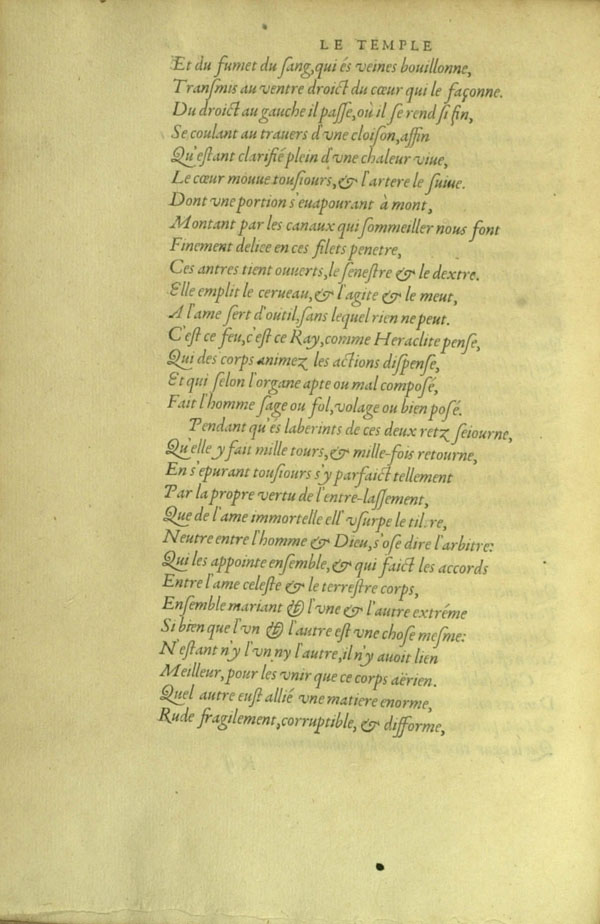 LE TEMPLE
Et du fumet du ſang, qui és veines bouillonne,
Tranſmis au ventre droict du cœur qui le façonne.
Du droict au gauche il paſſe, où il ſe rend ſi fin,
Se coulant au trauers d'vne cloiſon, affin
Qu'eſtant clarifié plein d'vne chaleur viue,
Le cœur mouue touſiours, & l'artere le ſuiue.
Dont vne portion s'euapourant à mont,
Montant par les canaux qui ſommeiller nous font
Finement deliee en ces filets penetre,
Ces antres tient ouuerts, le ſeneſtre & le dextre.
Elle emplit le cerueau, & l'agite & le meut,
A l'ame ſert d'outil, ſans lequel rien ne peut.
C'eſt ce feu, c'eſt ce Ray, comme Heraclite penſe,
Qui des corps animez les actions diſpenſe,
Et qui ſelon l'organe apte ou mal compoſé,
Fait l'homme ſage ou fol, volage ou bien poſé.
Pendant qu'és laberints de ces deux retz ſeiourne,
Qu'elle y fait mille tours, & mille-fois retourne,
En s'epurant touſiours s'y parfaict tellement
Par la propre vertu de l'entre-laſſement,
Que de l'ame immortelle ell' vſurpe le tiltre,
Neutre entre l'homme & Dieu, s'oſe dire l'arbitre:
Qui les appointe enſemble, & qui faict les accords
Entre l'ame celeſte & le terreſtre corps,
Enſemble mariant & l'vne & l'autre extréme
Si bien que l'vn & l'autre eſt vne choſe meſme:
N'eſtant n'y l'vn ny l'autre, il n'y auoit lien
Meilleur, pour les vnir que ce corps aërien.
Quel autre euſt allié vne matiere enorme,
Rude fragilement, corruptible, & difforme,